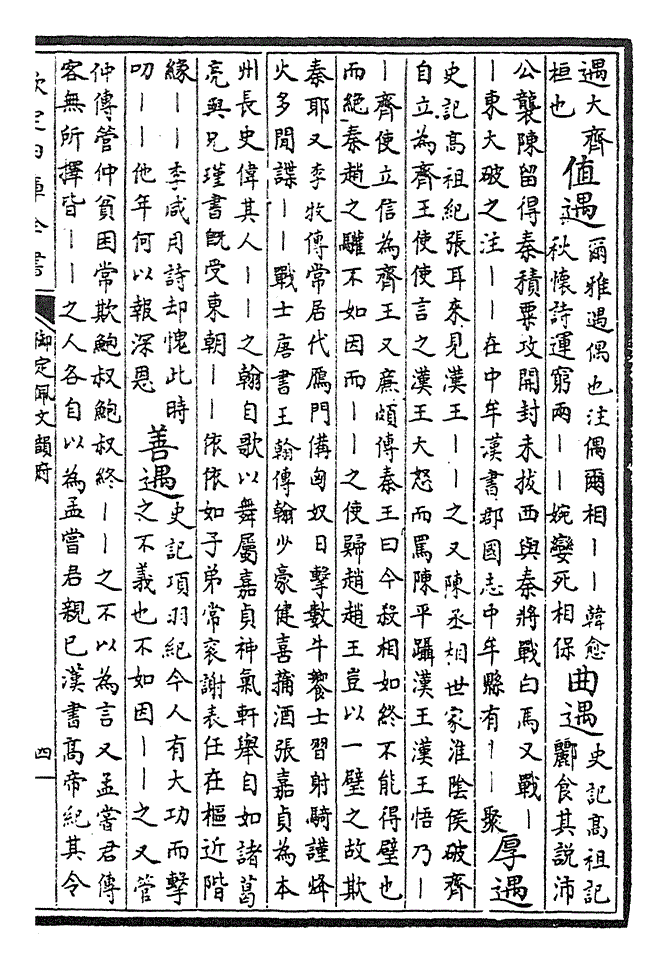 遇大齊
桓也
值遇
爾雅遇偶也注偶爾相丨丨韓愈
秋懷詩運窮兩丨丨婉孌死相保
曲遇
史記高祖記
酈食其說沛
公襲陳留得秦積粟攻開封未拔西與秦將戰白馬又戰丨
丨東大破之注丨丨在中牟漢書郡國志中牟縣有丨丨聚
厚遇
史記高祖紀張耳來見漢王丨丨之又陳丞相世家淮陰侯破齊
自立為齊王使使言之漢王大怒而罵陳平躡漢王漢王悟乃丨
丨齊使立信為齊王又廉頗傳秦王曰今殺相如終不能得璧也
而絕秦趙之驩不如因而丨丨之使歸趙趙王豈以一璧之故欺
秦耶又李牧傳常居代鴈門備匈奴日擊數牛饗士習射騎謹烽
火多間諜丨丨戰士唐書王翰傳翰少豪健喜蒱酒張嘉貞為本
州長史偉其人丨丨之翰自歌以舞屬嘉貞神氣軒舉自如諸葛
亮與兄瑾書旣受東朝丨丨依依如子弟常袞謝表任在樞近階
緣丨丨李咸用詩却愧此時
叨丨丨他年何以報深恩
善遇
史記項羽紀今人有大功而擊
之不義也不如因丨丨之又管
仲傳管仲貧困常欺鮑叔鮑叔終丨丨之不以為言又孟嘗君傳
客無所擇皆丨丨之人各自以為孟嘗君親已漢書高帝紀其令
欽定四庫全書
御定佩文韻府
四